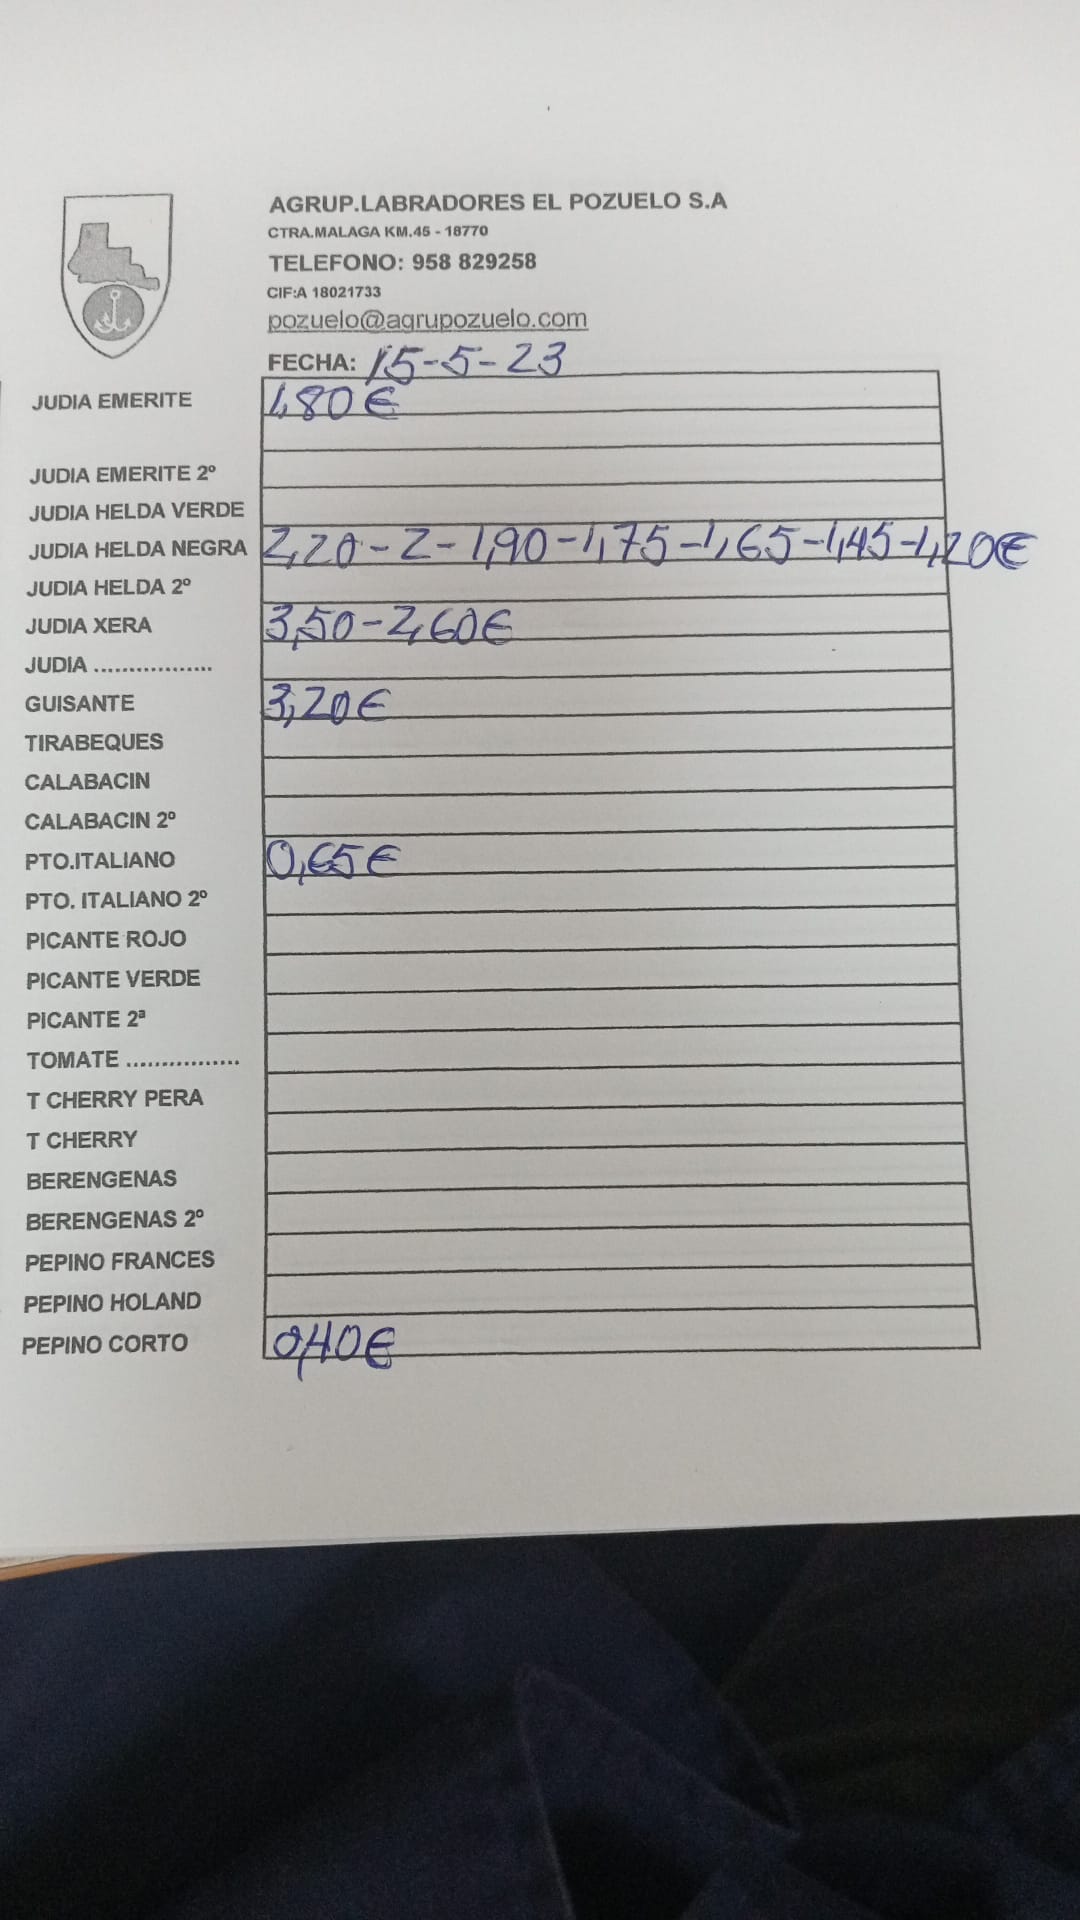 AGRUP.LABRADORES EL POZUELO S.A
CTRA.MALAGA KM.45 - 18770
TELEFONO: 958 829258
CIF:A 18021733
pozuelo@agrupozuelo.com
FECHA: 15-5-23
JUDIA EMERITE 1,80€
JUDIA EMERITE 2º
JUDIA HELDA VERDE
JUDIA HELDA NEGRA 2,20-2-1,90-1,75-1,65-1,45-1,20€
JUDIA HELDA 2º
JUDIA XERA 3,50-2,60€
JUDIA .................
GUISANTE 3,20€
TIRABEQUES
CALABACIN
CALABACIN 2º
PTO.ITALIANO 0,65€
PTO. ITALIANO 2º
PICANTE ROJO
PICANTE VERDE
PICANTE 2ª
TOMATE ................
T CHERRY PERA
T CHERRY
BERENGENAS
BERENGENAS 2º
PEPINO FRANCES
PEPINO HOLAND
PEPINO CORTO 0,40€